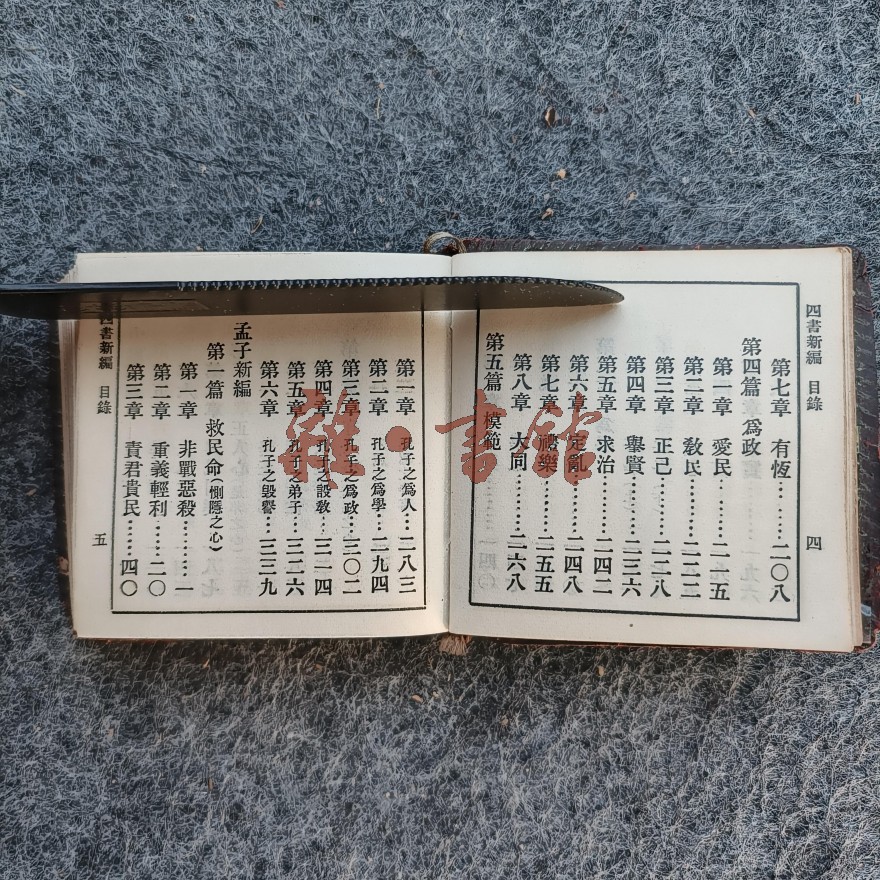 四書新編 目錄
四
第七章 有恆………二〇八
第四篇 爲政
第一章 愛民………二一五
第二章 敎民………二二二
第三章 正己………二二八
第四章 舉賢………二三六
第五章 求治………二四二
第六章 定亂………二四八
第七章 禮樂………二五五
第八章 大同………二六八
第五篇 模範
第一章 孔子之爲人…二八三
第二章 孔子之爲學…二九四
第三章 孔子之爲政…三〇二
第四章 孔子之設敎…三一四
第五章 孔子之弟子…三二六
第六章 孔子之毀譽…三三九
孟子新編
第一篇 救民命(惻隱之心)
第一章 非戰惡殺………一
第二章 重義輕利………二〇
第三章 責君貴民………四〇
四書新編 目錄
五
雜·書館